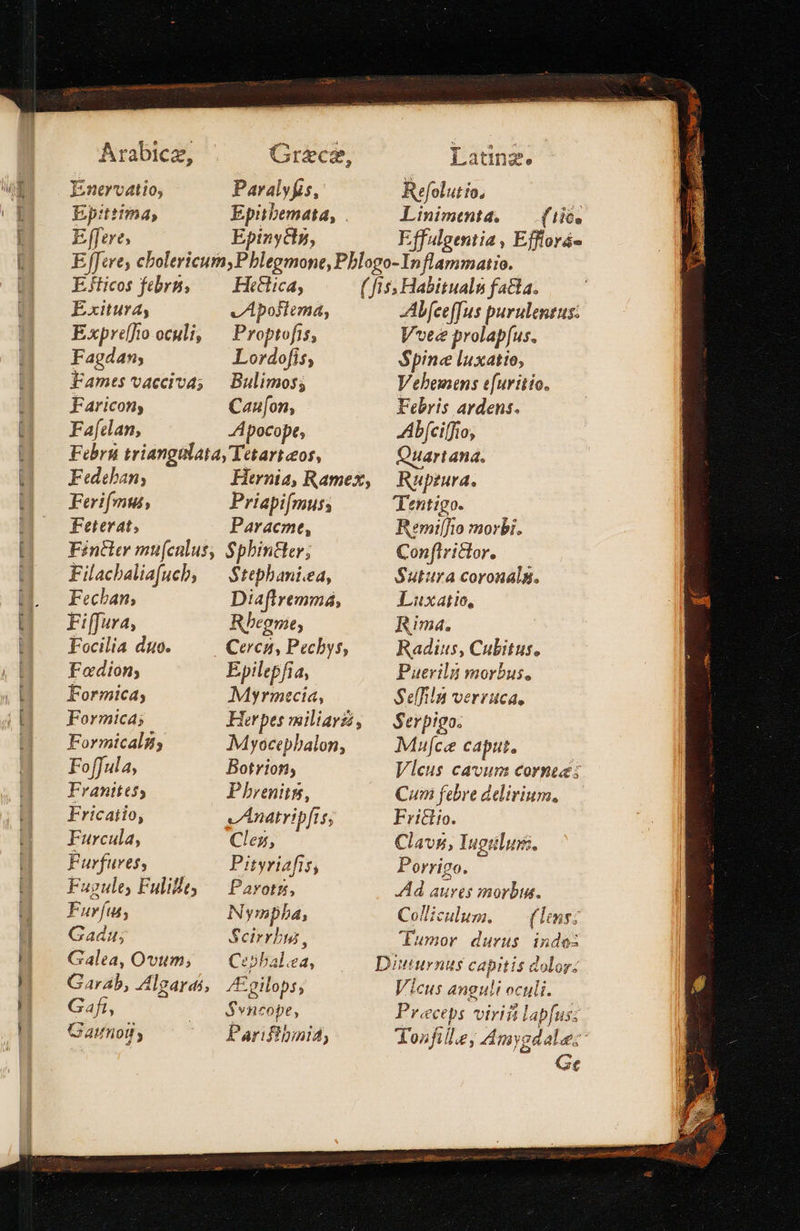 Arabicæ, Græcæ, Latinæ.
Enervatio, Paralyſis, Reſolutio.
Epittima, Epithemata, Linimenta. (tio.
Eſſere, Epinyctis, Effulgentia, Effloreſ-
Eſſere, cholericum, Phlegmone, Phlogo-Inflammatio.
Eſticos febris, Hectica, (ſis, Habitualis facta.
Exitura, Apoſtema, Abſceſſus purulentus.
Expreſſio oculi, Proptoſis, Vveæ prolapſus.
Fagdan, Lordoſis, Spinæ luxatio,
Fames vacciva, Bulimos, Vehemens eſuritio.
Faricon, Cauſon, Febris ardens.
Faſelan, Apocope, Abſciſſio,
Febris triangulata, Tetartæos, Quartana.
Fedeban, Hernia, Ramex, Ruptura.
Feriſmus, Priapiſmus, Tentigo.
Feterat, Paracme, Remiſſio morbi.
Fincter muſculus, Sphincter, Conſtrictor.
Filachaliaſuch, Stephaniæa, Sutura coronalis.
Fecban, Diaſtremma, Luxatio,
Fiſſura, Rhegme, Rima.
Focilia duo. Cercis, Pechys, Radius, Cubitus.
Fœdion, Epilepſia, Puerilis morbus.
Formica, Myrmecia, Seſſilis verruca,
Formica, Herpes miliaris, Serpigo.
Formicalis, Myocephalon, Muſcæ caput.
Foſſula, Botrion, Vlcus cavum corneæ.
Franites, Phrenitis, Cum febre delirium.
Fricatio, Anatripſis, Frictio.
Furcula, Cleis, Clavis, Iugulum.
Furfures, Pityriaſis, Porrigo.
Fugule, Fulille, Parotis, Ad aures morbus.
Furſus, Nympha, Colliculum. (lens.
Gadus, Scirrhus, Tumor durus indo-
Galea, Ovum, Cephalæa, Diuturnus capitis dolor.
Garab, Algaras, Ægilops, Vlcus anguli oculi.
Gaſi, Syncope, Præceps viriũ lapſus.
Gaunoũ, Pariſthmia, Tonſillæ, Amygdalæ.
Ge